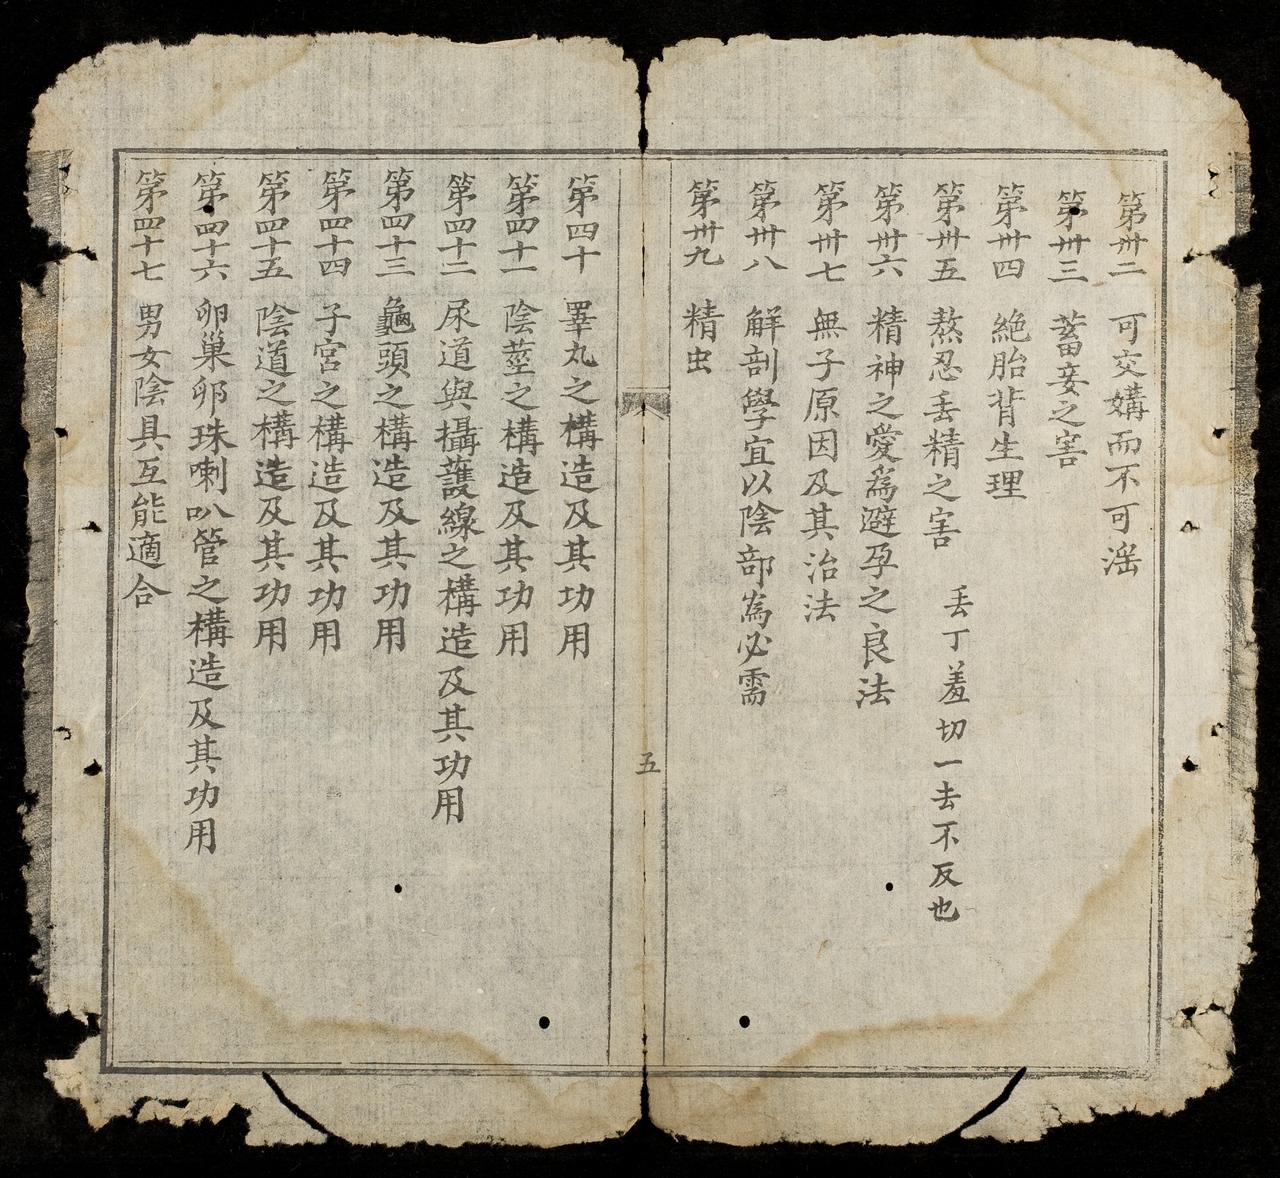 第卅二 可交媾而不可淫
第卅三 蓄妾之害
第卅四 絶胎背生理
第卅五 熬忍丢精之害 丢丁羞切一去不反也
第卅六 精神之愛爲避孕之良法
第卅七 無子原因及其治法
第卅八 解剖學宜以陰部爲必需
第卅九 精虫
五
第四十 睾丸之構造及其功用
第四十一 陰莖之構造及其功用
第四十二 尿道與攝護線之構造及其功用
第四十三 龜頭之構造及其功用
第四十四 子宮之構造及其功用
第四十五 陰道之構造及其功用
第四十六 卵巢卵珠喇叭管之構造及其功用
第四十七 男女陰具互能適合